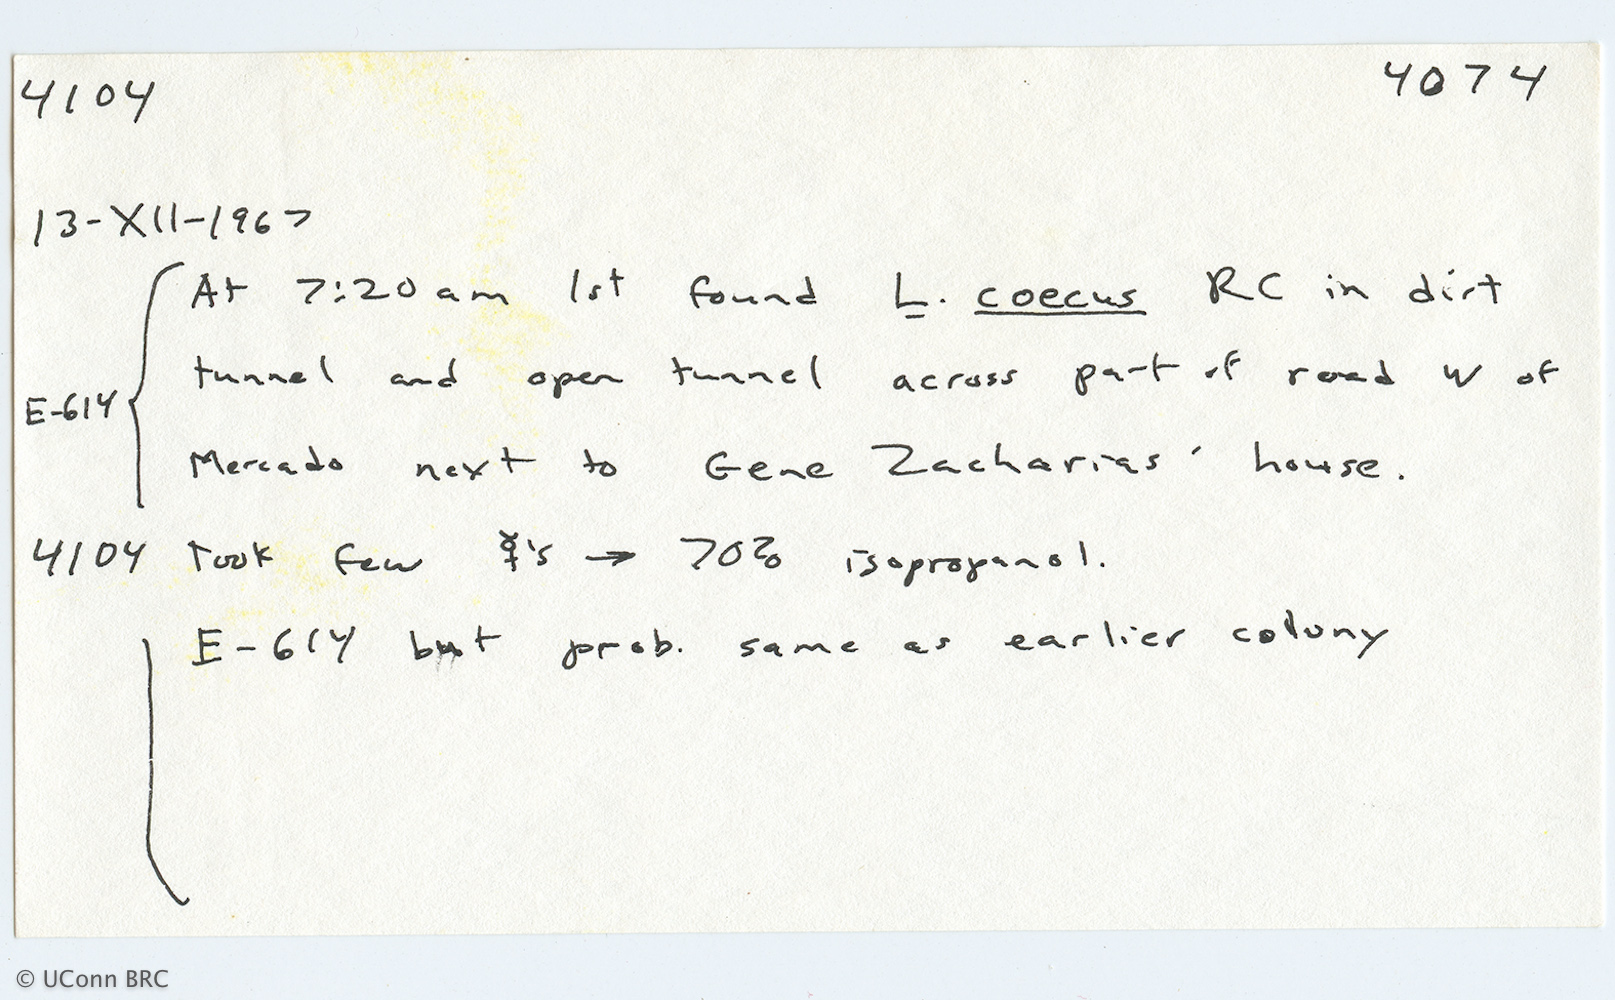 4104 4074
13-XII-1967
At 7:20 am 1st found L. coecus RC in dirt
tunnel and open tunnel across part of road W of
E-614
Mercado next to Gene Zacharias' house.
4104 Took few ☿'s → 70% isopropanol.
E-614 but prob. same as earlier colony
© UConn BRC